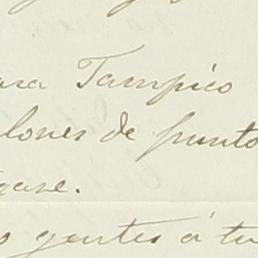 para Tampico
lones de punto
gase.
o gentes á tu